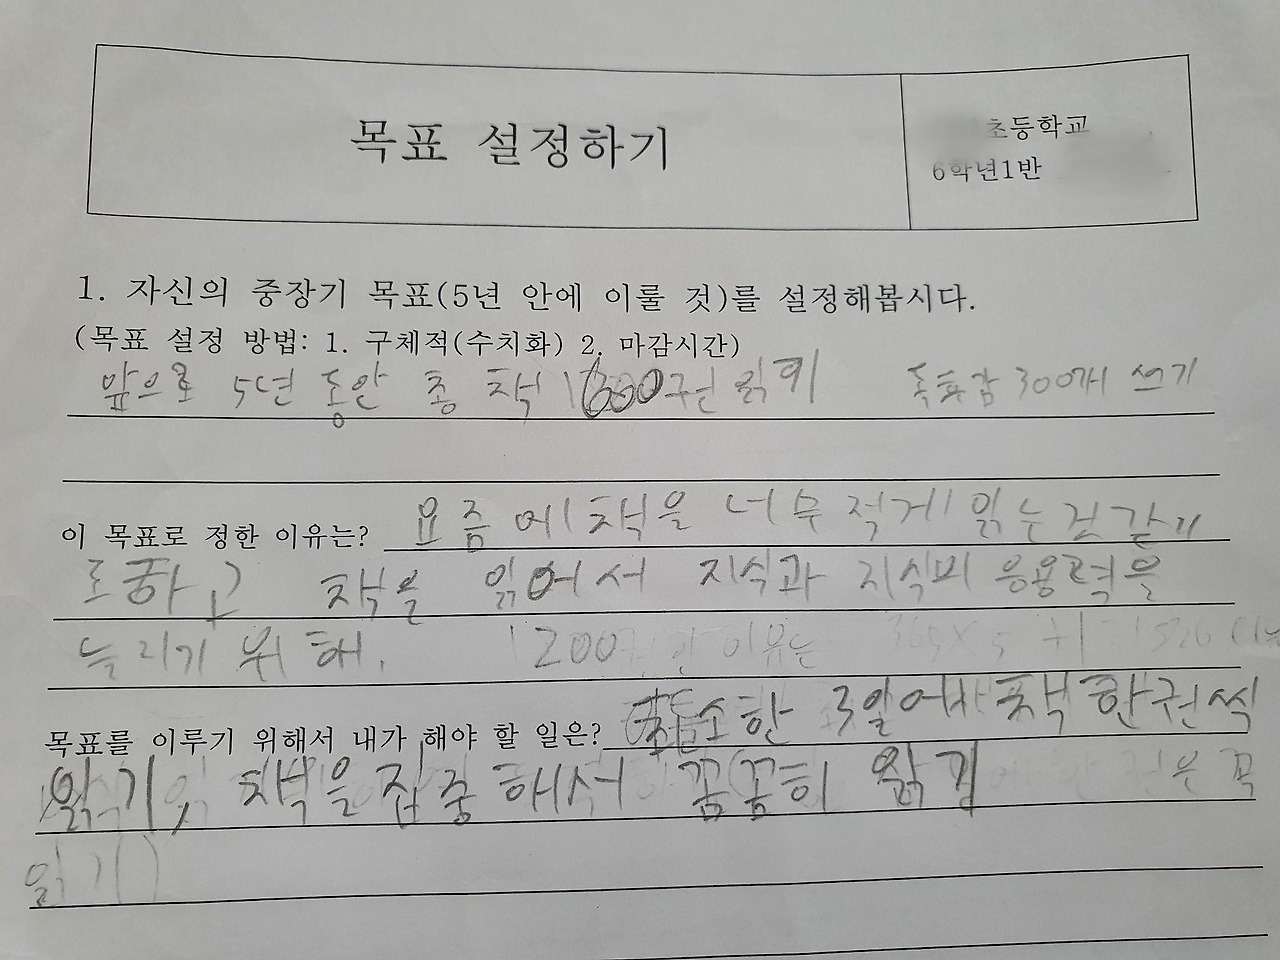 목표 설정하기
초등학교
6학년1반
1. 자신의 중장기 목표(5년 안에 이룰 것)를 설정해봅시다.
(목표 설정 방법: 1. 구체적(수치화) 2. 마감시간)
앞으로 5년 동안 총 책 권 읽기 독후감 300개 쓰기
이 목표로 정한 이유는? 요즘에 책을 너무 적게 읽는 것 같기
도 하고 책을 읽어서 지식과 지식의 응용력을
늘리기 위해. 1200권 한 이유는 365×5
목표를 이루기 위해서 내가 해야 할 일은? 최소한 3일에 책 한권씩
읽기, 책을 집중해서 꼼꼼히 읽기 은 꼭
읽기